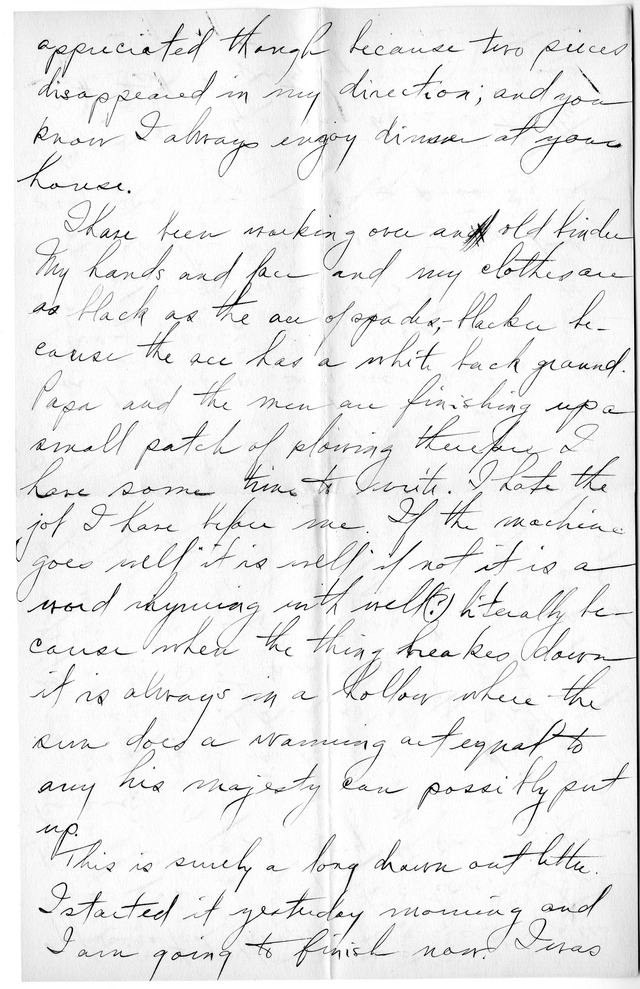 appreciated though because two pieces
disappeared in my direction; and you
know I always enjoy dinner at your
house.
I have been working over an old binder
My hands and face and my clothes are
as black as the ace of spades,- blacker be-
cause the ace has a white back ground.
Papa and the men are finishing up a
small patch of plowing therefore I
have some time to write. I hate the
job I have before me. If the machine
goes well it is well if not it is a
word rhyming with well(?) literally be-
cause when the thing breakes down
it is always in a hollow where the
sun does a warming act equal to
any his majesty can possibly put
up.
This is surely a long drawn out letter.
I started it yesterday morning and
I am going to finish now. I was